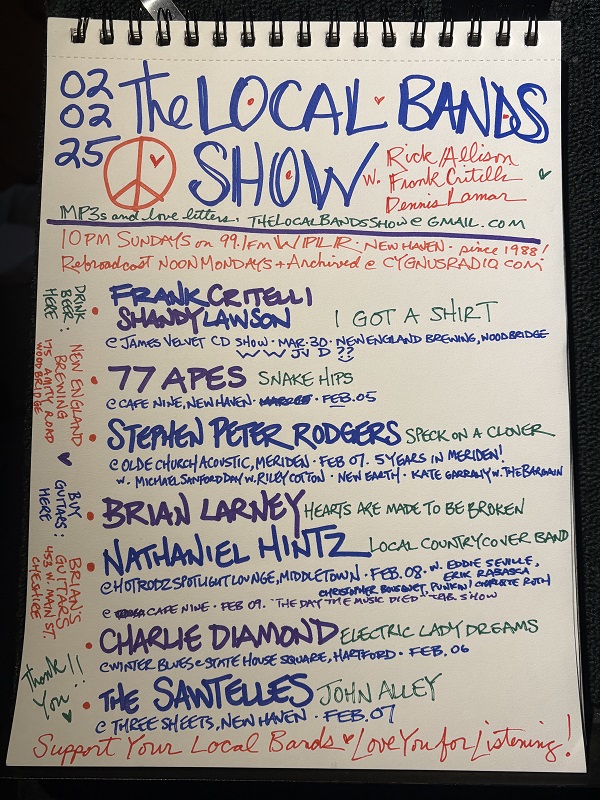 02
02
25
The LOCAL BANDS
SHOW
w. Rick Allison
Frank Critelli
Dennis Lamar
MP3s and love letters: THELOCALBANDSSHOW@GMAIL.COM
10PM SUNDAYS on 99.1fm WPLR · NEW HAVEN · since 1988!
Rebroadcast NOON MONDAYS + Archived @ CYGNUSRADIO.COM
DRINK BEER HERE:
NEW ENGLAND BREWING
175 AMITY ROAD
WOODBRIDGE
BUY GUITARS HERE:
BRIAN'S GUITARS
453 W. MAIN ST.
CHESHIRE
Thank You!!
FRANK CRITELLI
SHANDY LAWSON I GOT A SHIRT
@ JAMES VELVET CD SHOW · MAR. 30 · NEW ENGLAND BREWING, WOODBRIDGE
WWJVD??
77 APES SNAKE HIPS
@ CAFE NINE, NEW HAVEN · FEB. 05
STEPHEN PETER RODGERS SPECK ON A CLOVER
@ OLDE CHURCH ACOUSTIC, MERIDEN · FEB 07. 5 YEARS IN MERIDEN!
w. MICHAEL SANFORD DAY w. RILEY COTTON · NEW EARTH · KATE w. THE BARGAIN
BRIAN LARNEY HEARTS ARE MADE TO BE BROKEN
NATHANIEL HINTZ LOCAL COUNTRY COVER BAND
@ HOTRODZ SPOTLIGHT LOUNGE, MIDDLETOWN · FEB. 08 · w. EDDIE SEVILLE,
ERIK RABASCA
CHRISTOPHER BOUSQUET PUNKIN! CHARLOTTE ROTH
@ CAFE NINE · FEB 09. "THE DAY THE MUSIC DIED" SHOW
CHARLIE DIAMOND ELECTRIC LADY DREAMS
@ WINTER BLUES @ STATE HOUSE SQUARE, HARTFORD · FEB. 06
THE SAWTELLES JOHN ALLEY
@ THREE SHEETS, NEW HAVEN · FEB. 07
Support Your Local Bands Love You for Listening!